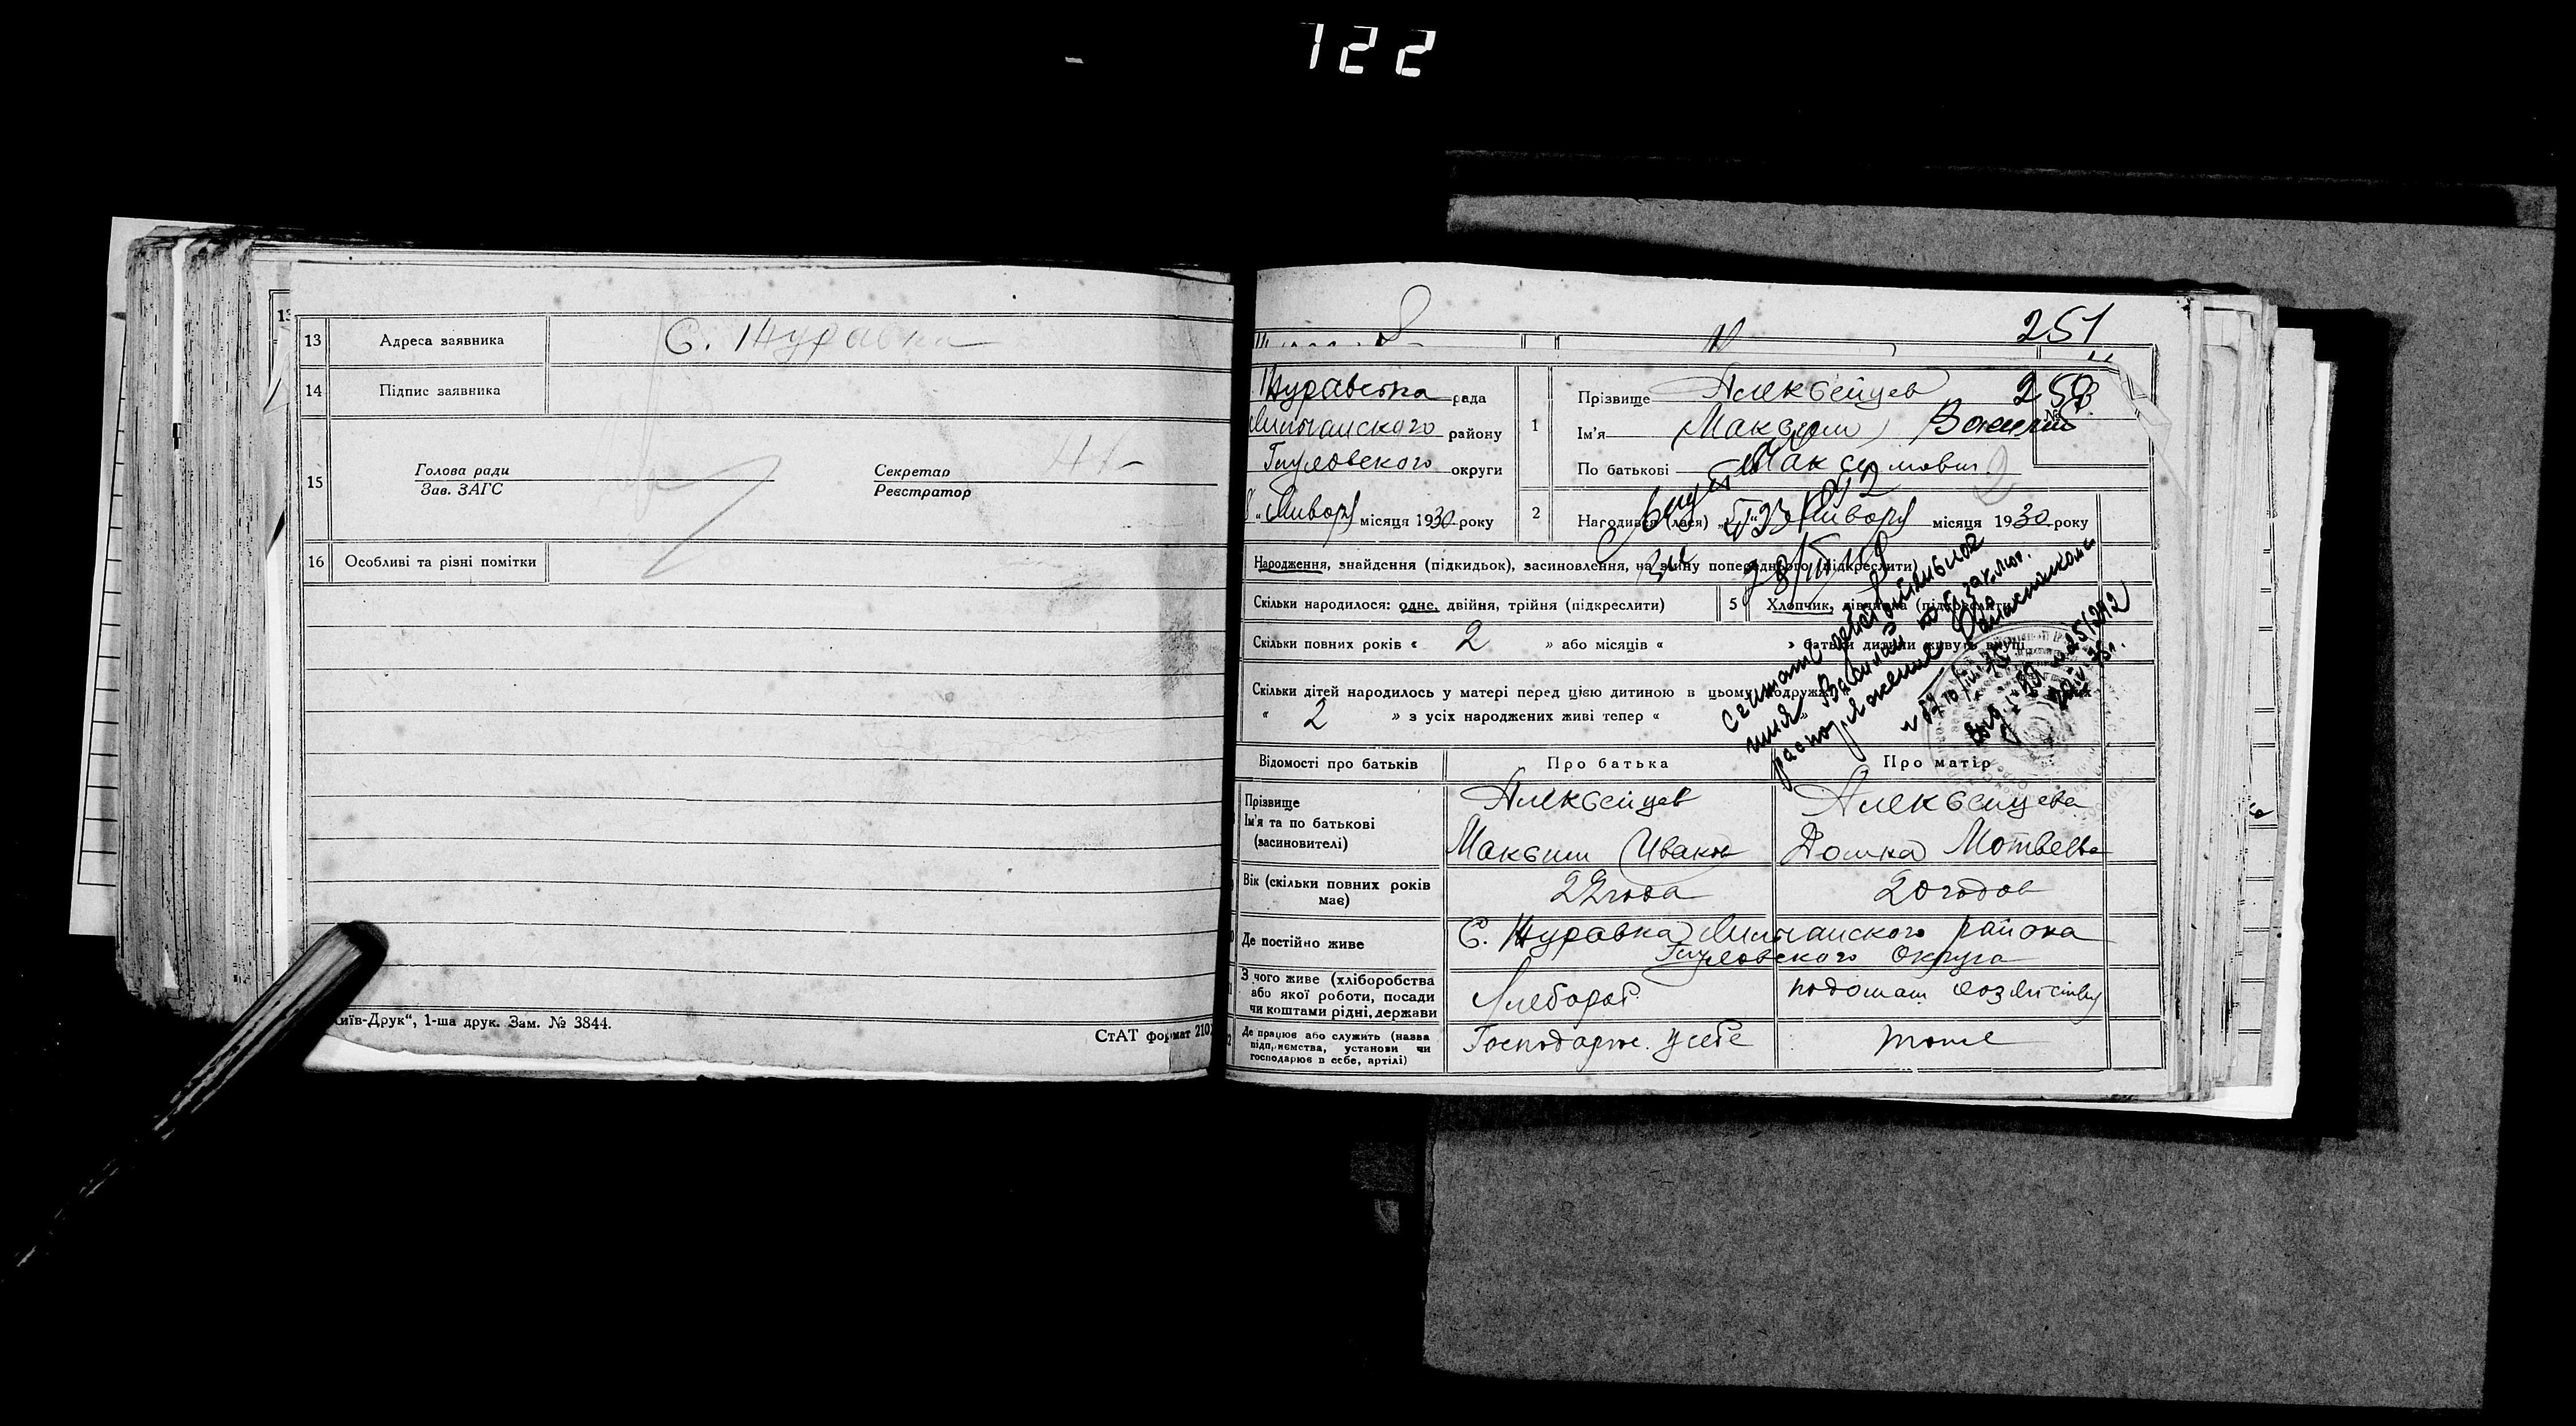 122
13 Адреса заявника С. Журавка
14 Підпис заявника
15 Голова ради Зав. ЗАГС Секретар Реєстратор
16 Особливі та різні помітки
"Київ-Друк", 1-ша друк. Зам. № 3844.
СтАТ формат 210
251
Журавська рада
району
округи
місяця 1930 року
1 Прізвище Алексейцев
Ім'я (Максим)
По батькові Максимович
№
2 Народився (лася) Января місяця 1930 року
Народження, знайдення (підкидьок), засиновлення, на зміну попереднього (підкреслити)
Скільки народилося: одне, двійня, трійня (підкреслити)
5 Хлопчик, дівчина (підкреслити)
Скільки повних років « 2 » або місяців « » батьки дитини живуть вкупі
Скільки дітей народилось у матері перед цією дитиною в цьому подружжі
« 2 » з усіх народжених живі тепер «
Считать действительное
имя
распоряжение
Відомості про батьків Про батька Про матір
Прізвище Алексейцев Алексейцева
Ім'я та по батькові (засиновителі) Максим Иванов Домка Мотвеевна
Вік (скільки повних років має) 22 года 20 годов
Де постійно живе С. Журавка района
Округа
З чого живе (хліборобства або якої роботи, посади чи коштами рідні, держави Хлебороб
Де працює або служить (назва підприємства, установи чи господарює в себе, артілі) Господарює у себе тоже